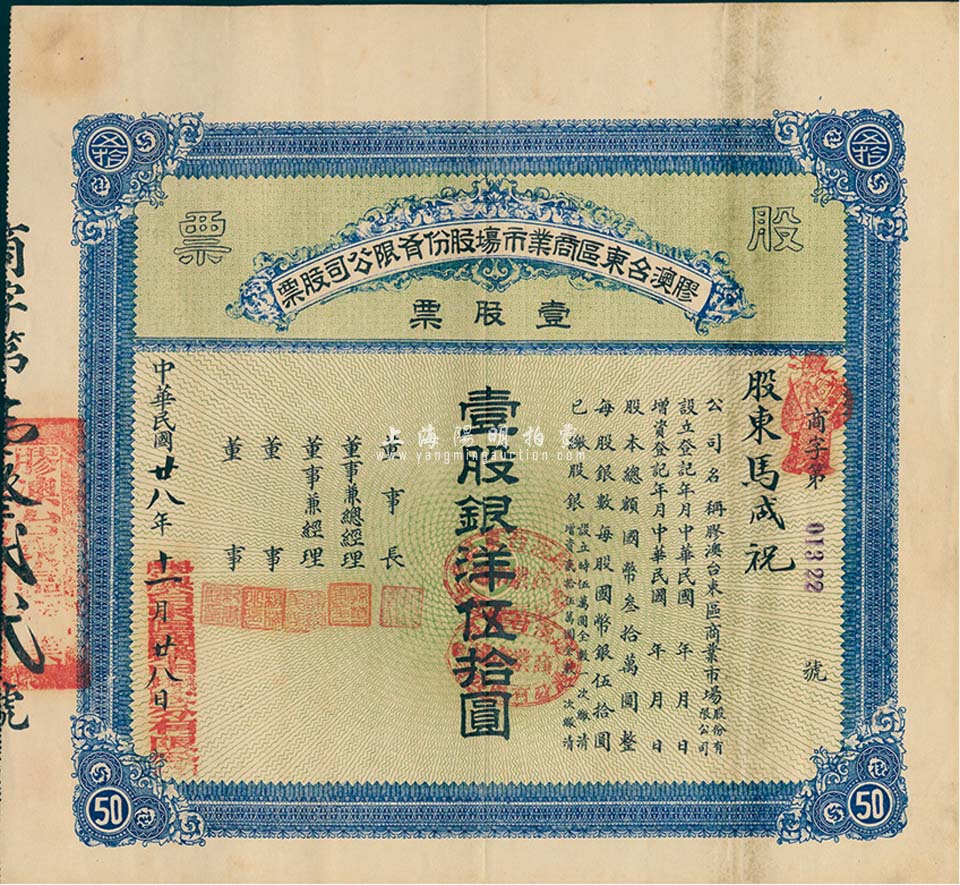 股票
膠澳台東區商業市場股份有限公司股票
壹股票
商字第 01322 號
股東馬成祝
公司名稱膠澳台東區商業市場股份有限公司
設立登記年月中華民國 年 月 日
增資登記年月中華民國 年 月 日
股本總額國幣叁拾萬圓整
每股銀數每股國幣銀伍拾圓
已繳股銀 設立時伍萬圓全數一次繳清
增資貳拾伍萬圓全數一次繳清
壹股銀洋伍拾圓
董事長
董事兼總經理
董事兼經理
董事
董事
中華民國廿八年十一月廿八日
伍拾
伍拾
50
50
上海陽明拍賣
www.yangmingauction.com